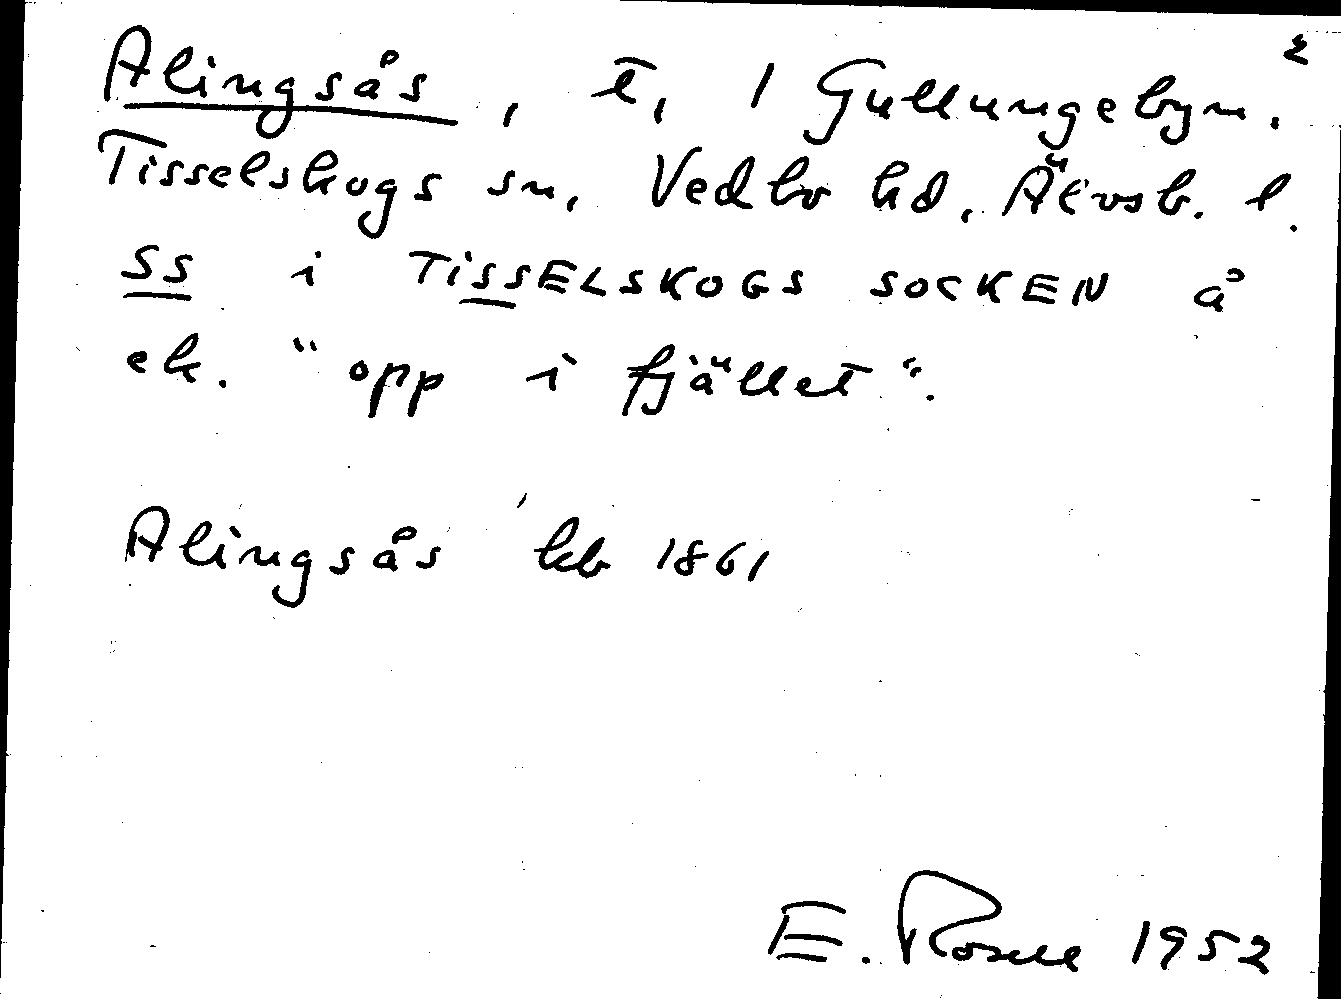 2
Alingsås, t, 1 Gullungebyn.
Tisselskogs sn, Vedbo hd, Älvsb. l.
SS i TiSSELSKOGS SOCKEN å
ek. "opp i fjället".
Alingsås kb 1861
E. Rosell 1952